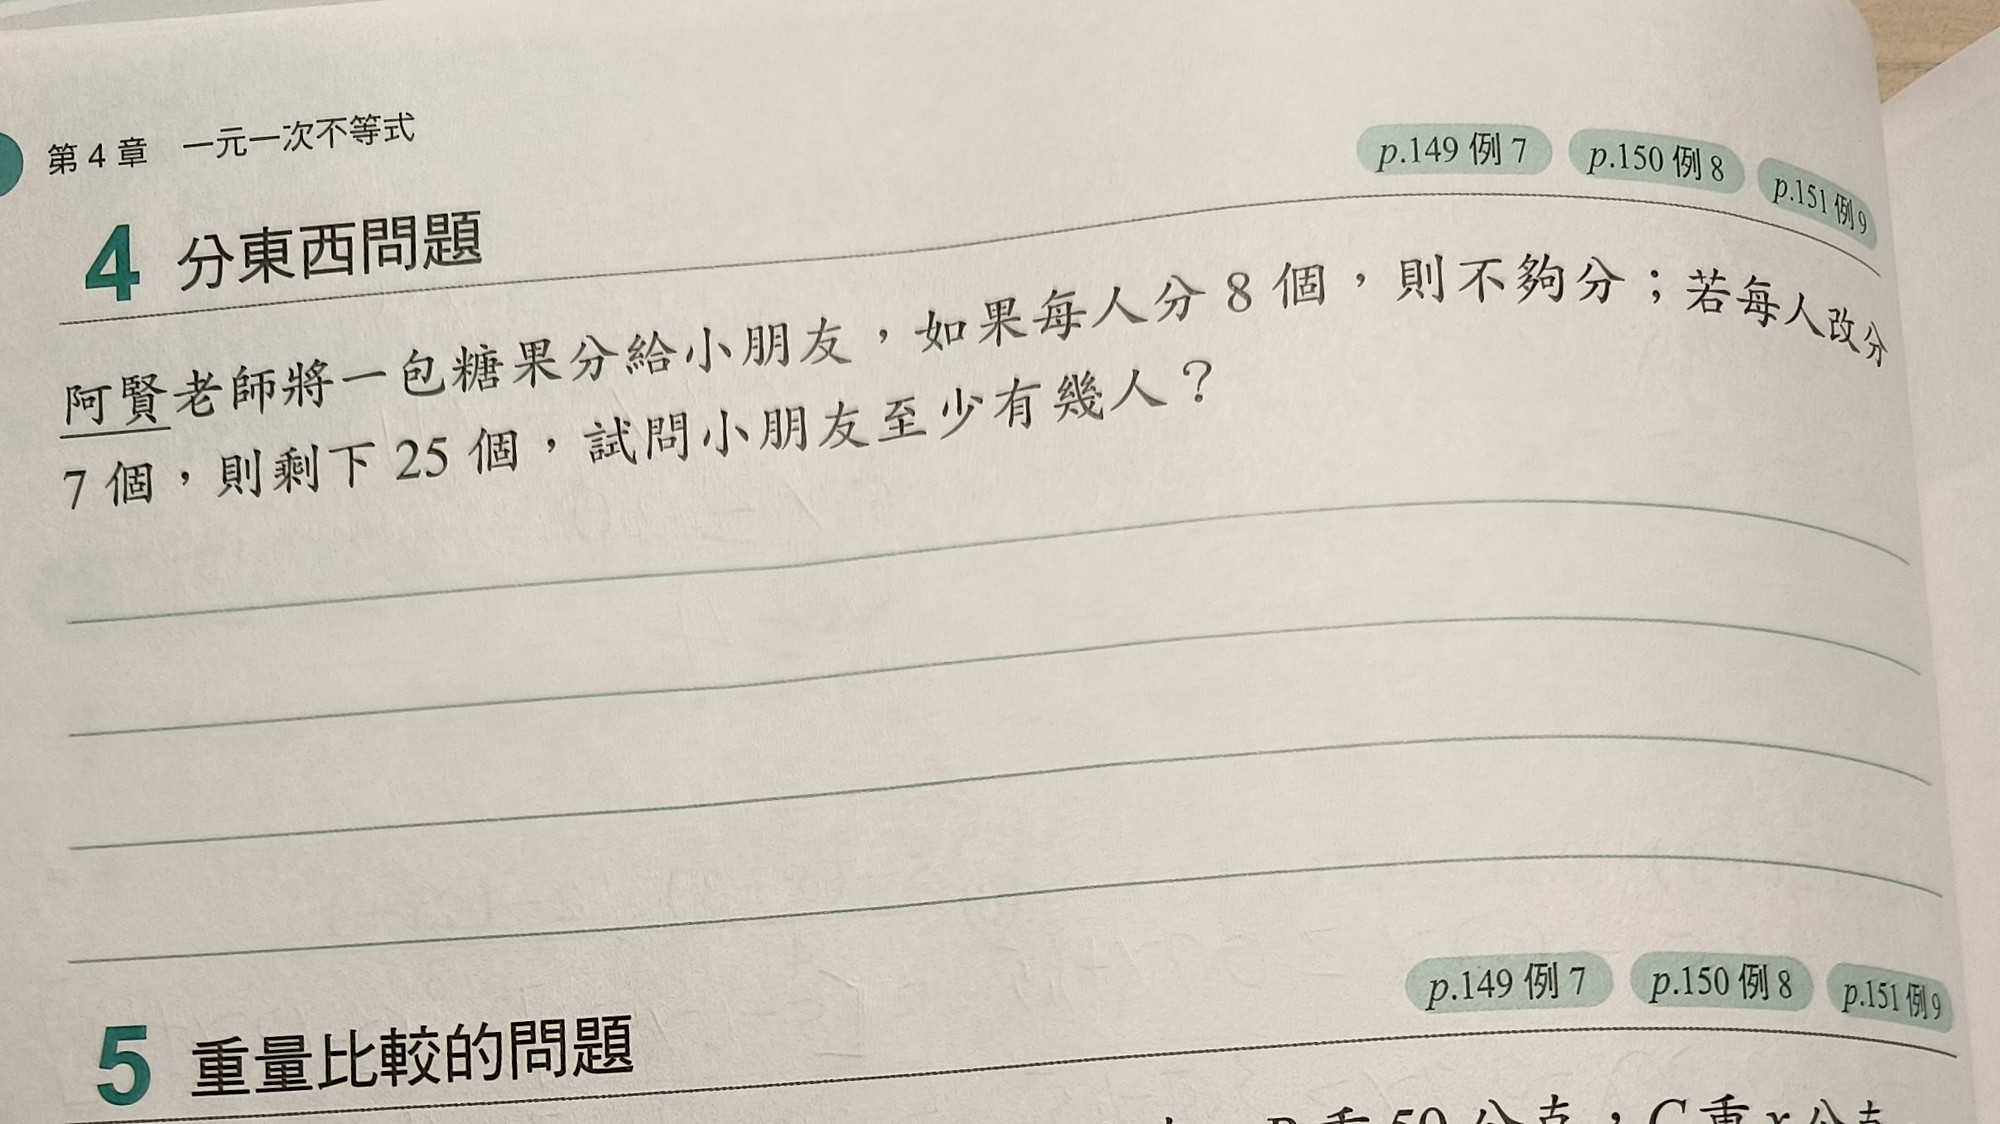 第4章 一元一次不等式
p.149 例7 p.150 例8 p.151 例9
4 分東西問題
阿賢老師將一包糖果分給小朋友，如果每人分8個，則不夠分；若每人改分
7個，則剩下25個，試問小朋友至少有幾人？
p.149 例7 p.150 例8 p.151 例9
5 重量比較的問題
重50公克，C重x公克